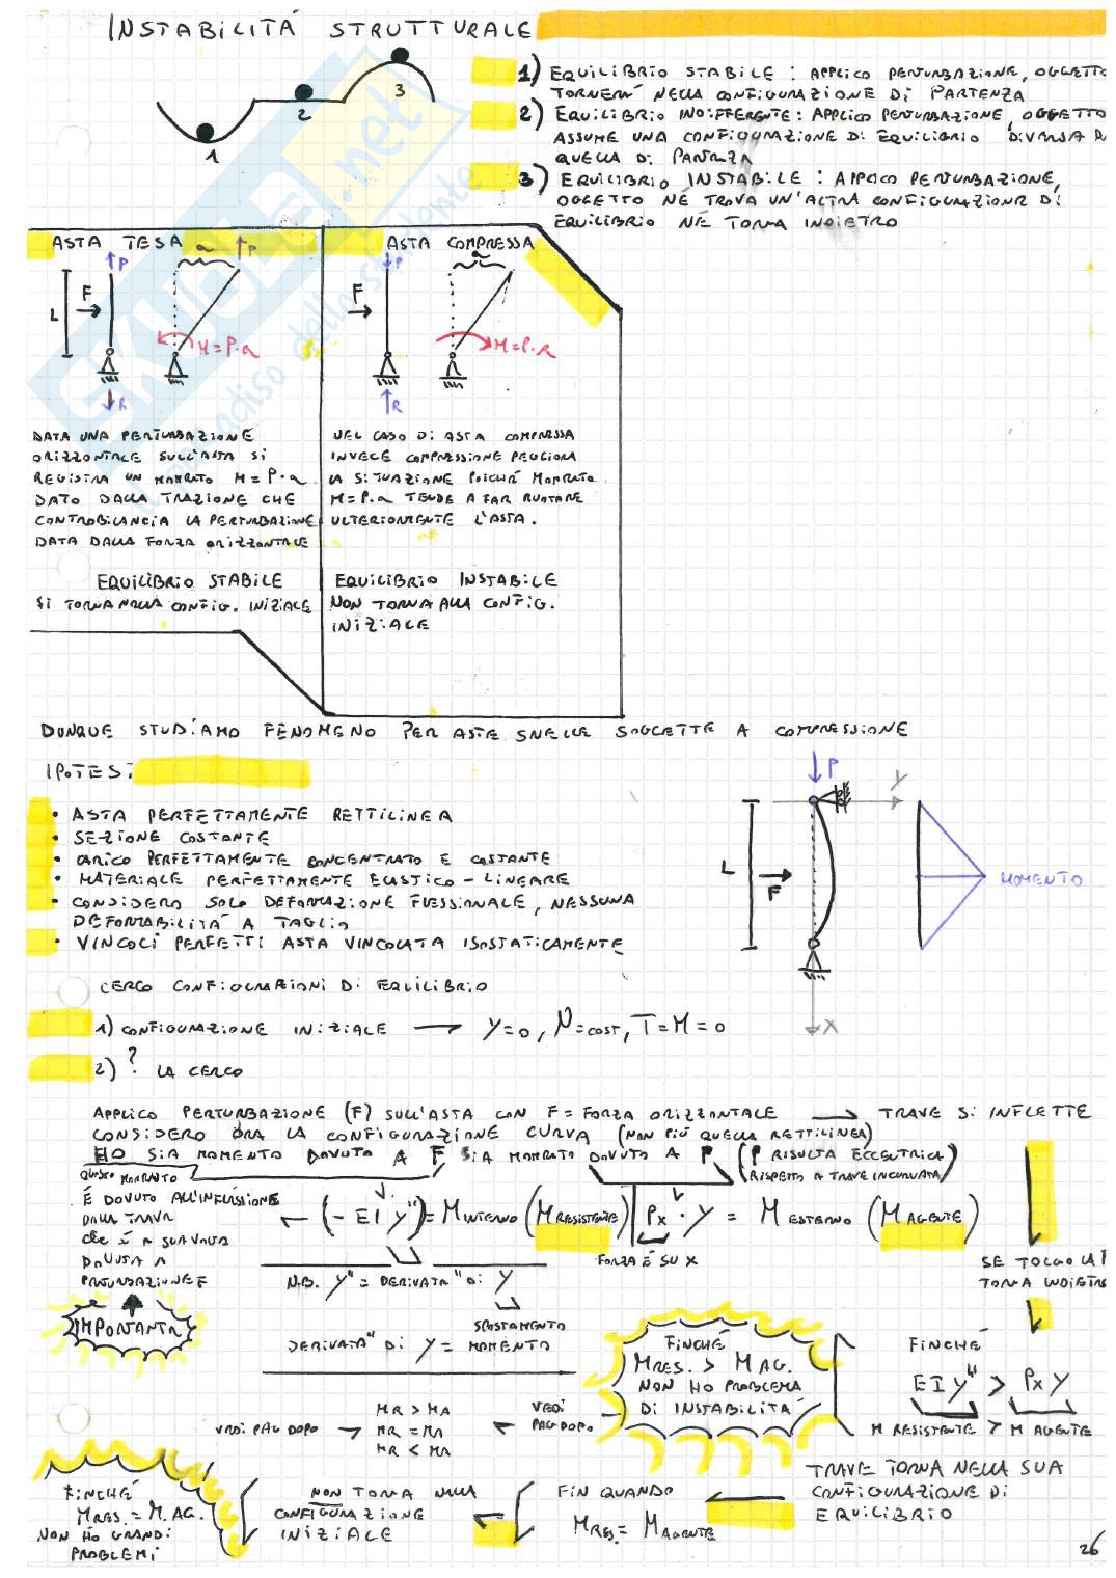 INSTABILITÁ STRUTTURALE
1) EQUILIBRIO STABILE : APPLICO PERTURBAZIONE, OGGETTO
TORNERÀ NELLA CONFIGURAZIONE DI PARTENZA
2) EQUILIBRIO INDIFFERENTE : APPLICO PERTURBAZIONE, OGGETTO
ASSUME UNA CONFIGURAZIONE DI EQUILIBRIO DIVERSA DA
QUELLA DI PARTENZA
3) EQUILIBRIO INSTABILE : APPLICO PERTURBAZIONE,
OGGETTO NÉ TROVA UN'ALTRA CONFIGURAZIONE DI
EQUILIBRIO NÉ TORNA INDIETRO
1
2
3
SKUOLA.net
ASTA TESA
P
a
P
F
L
M=P·a
R
DATA UNA PERTURBAZIONE
ORIZZONTALE SULL'ASTA SI
REGISTRA UN MOMENTO M=P·a
DATO DALLA TRAZIONE CHE
CONTROBILANCIA LA PERTURBAZIONE
DATA DALLA FORZA ORIZZONTALE
EQUILIBRIO STABILE
SI TORNA NELLA CONFIG. INIZIALE
ASTA COMPRESSA
P
a
F
M=P·a
R
NEL CASO DI ASTA COMPRESSA
INVECE COMPRESSIONE PEGGIORA
LA SITUAZIONE POICHÉ MOMENTO
M=P·a TENDE A FAR RUOTARE
ULTERIORMENTE L'ASTA.
EQUILIBRIO INSTABILE
NON TORNA ALLA CONFIG.
INIZIALE
DUNQUE STUDIAMO FENOMENO PER ASTE SNELLE SOGGETTE A COMPRESSIONE
IPOTESI
• ASTA PERFETTAMENTE RETTILINEA
• SEZIONE COSTANTE
• CARICO PERFETTAMENTE CONCENTRATO E COSTANTE
• MATERIALE PERFETTAMENTE ELASTICO - LINEARE
• CONSIDERO SOLO DEFORMAZIONE FLESSIONALE, NESSUNA
DEFORMABILITÀ A TAGLIO
• VINCOLI PERFETTI ASTA VINCOLATA ISOSTATICAMENTE
P
Y
L
F
X
MOMENTO
CERCO CONFIGURAZIONI DI EQUILIBRIO
1) CONFIGURAZIONE INIZIALE → Y=0, N=COST, T=M=0
2) ? LA CERCO
APPLICO PERTURBAZIONE (F) SULL'ASTA CON F = FORZA ORIZZONTALE → TRAVE SI INFLETTE
CONSIDERO ORA LA CONFIGURAZIONE CURVA (NON PIÙ QUELLA RETTILINEA)
HO SIA MOMENTO DOVUTO A F SIA MOMENTO DOVUTO A P (P RISULTA ECCENTRICA)
(RISPETTO A TRAVE INCURVATA)
QUESTO MOMENTO
É DOVUTO ALL'INFLESSIONE
DELLA TRAVE
CHE É A SUA VOLTA
DOVUTA A
PERTURBAZIONE F
← (- EI y") = M INTERNO (M RESISTENTE) | Px · y = M ESTERNO (M AGENTE)
FORZA É SU X
N.B. Y" = DERIVATA" DI Y
SPOSTAMENTO
DERIVATA" DI Y = MOMENTO
IMPORTANTE
SE TOLGO LA F
TORNA INDIETRO
FINCHÉ
EI Y" > Px Y
M RESISTENTE > M AGENTE
FINCHÉ
MRES. > MAG.
NON HO PROBLEMA
DI INSTABILITÀ
VEDI PAG DOPO →
MR > MA
MR = MA
MR < MA
← VEDI
PAG DOPO
TRAVE TORNA NELLA SUA
CONFIGURAZIONE DI
EQUILIBRIO
FIN QUANDO
MRES. = MAGENTE
NON TORNA NELLA
CONFIGURAZIONE
INIZIALE
FINCHÉ
MRES. = M.AG.
NON HO GRANDI
PROBLEMI
26